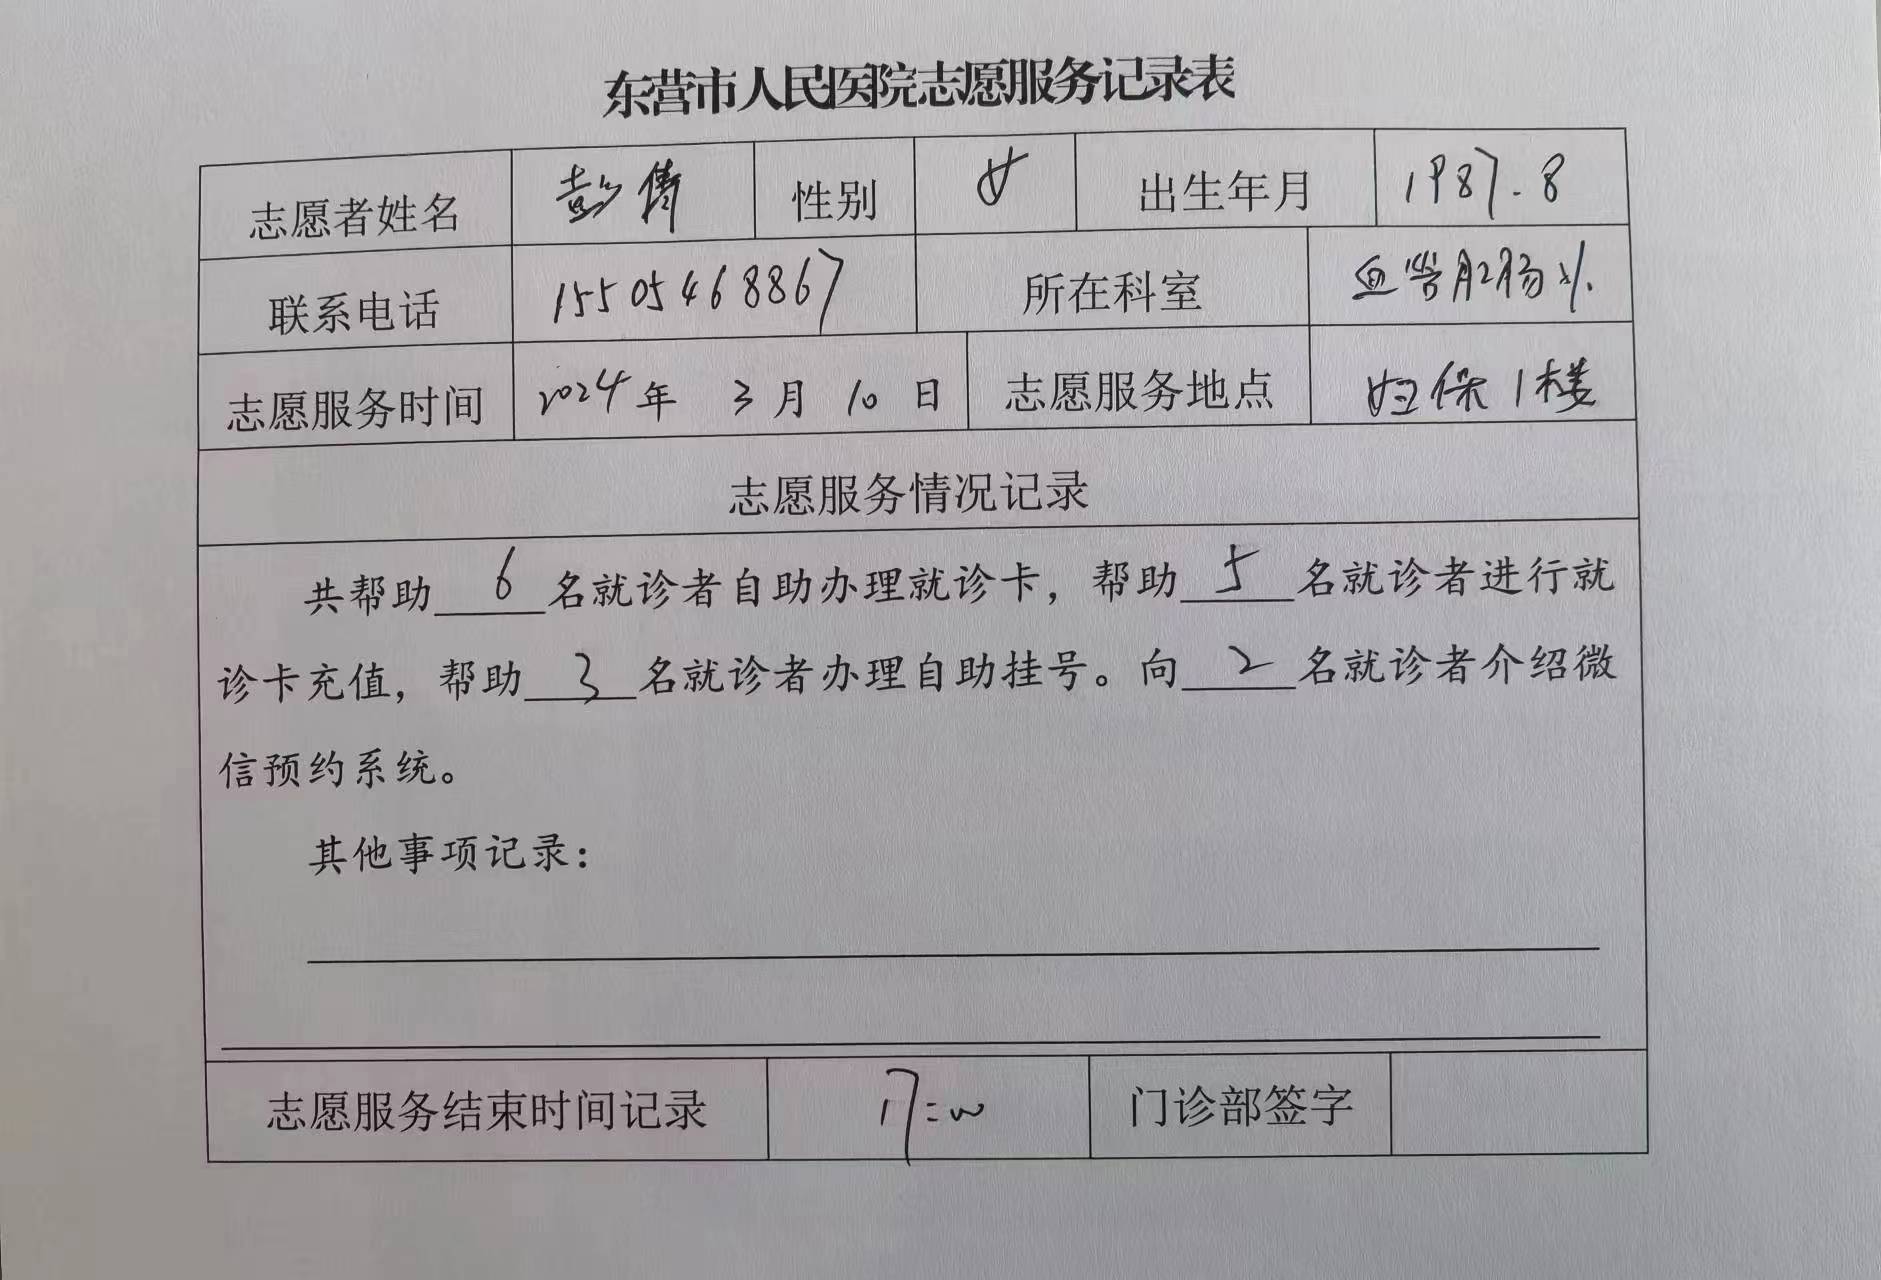 东营市人民医院志愿服务记录表
志愿者姓名 彭倩 性别 女 出生年月 1987.8
联系电话 15505468867 所在科室 血管肛肠外
志愿服务时间 2024年 3月 10日 志愿服务地点 妇保1楼
志愿服务情况记录
共帮助 6 名就诊者自助办理就诊卡，帮助 5 名就诊者进行就
诊卡充值，帮助 3 名就诊者办理自助挂号。向 2 名就诊者介绍微
信预约系统。
其他事项记录：
志愿服务结束时间记录 17:00 门诊部签字